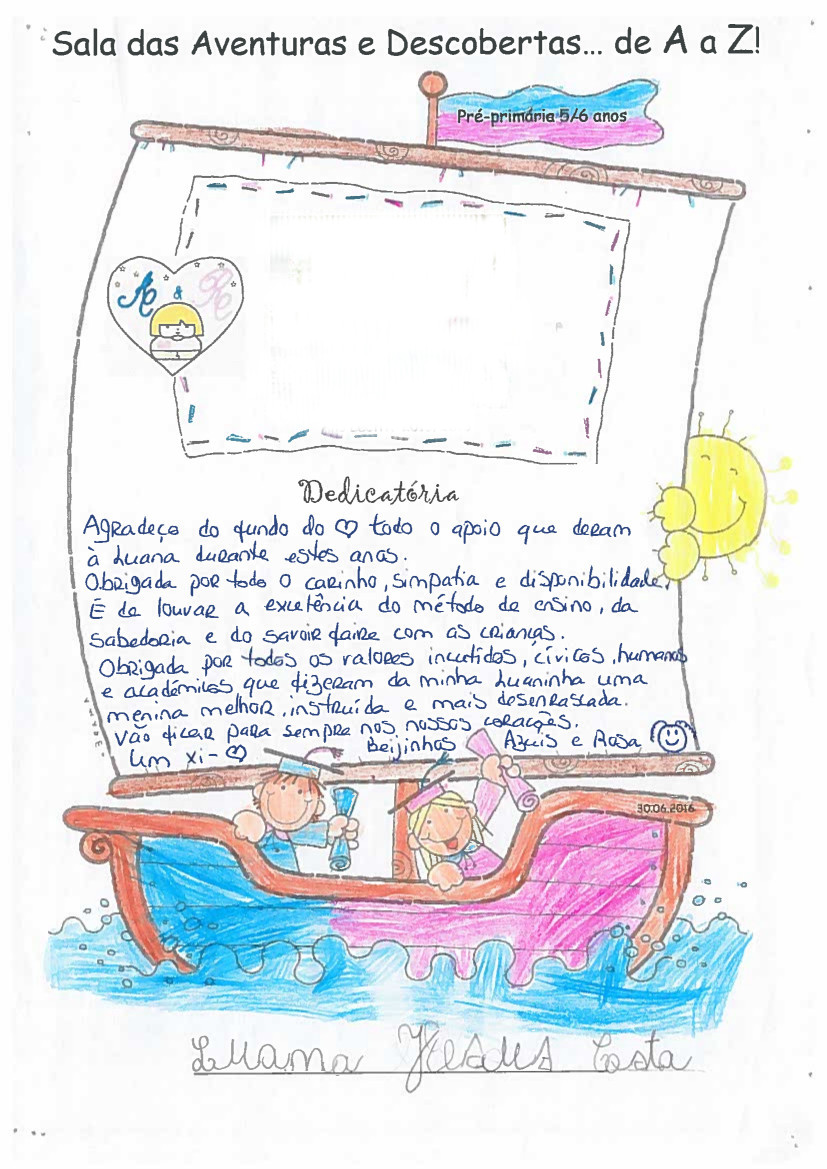 Sala das Aventuras e Descobertas... de A a Z!
Pré-primária 5/6 anos
A & R
Dedicatória
Agradeço do fundo do ♡ todo o apoio que deram
à Luana durante estes anos.
Obrigada por todo o carinho, simpatia e disponibilidade.
É de louvar a excelência do método de ensino, da
sabedoria e do savoir faire com as crianças.
Obrigada por todos os valores incutidos, cívicos, humanos
e académicos, que fizeram da minha Luaninha uma
menina melhor, instruída e mais desenrascada.
Vão ficar para sempre nos nossos corações.
Um xi-♡ Beijinhos Azuis e Rosa
30.06.2016
Luana Jesus Costa